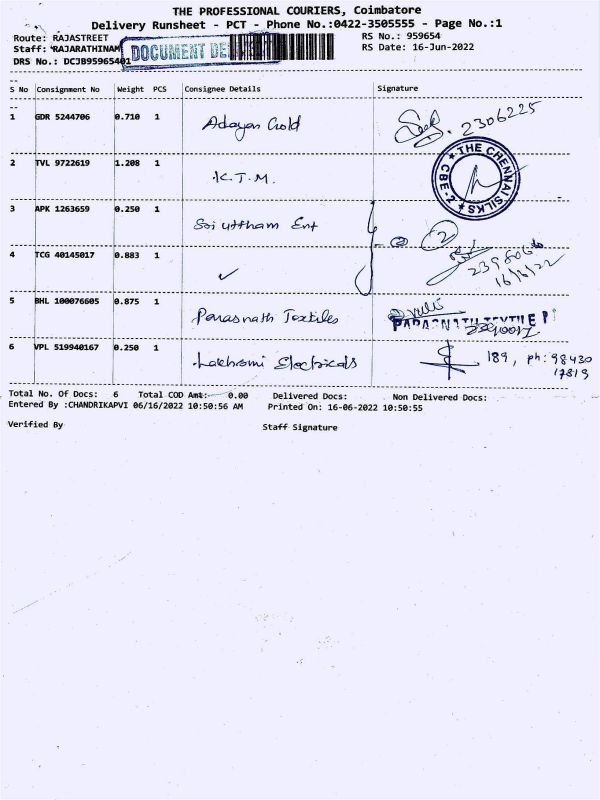 THE PROFESSIONAL COURIERS, Coimbatore
Delivery Runsheet - PCT - Phone No.:0422-3505555 - Page No.:1
Route: RAJASTREET RS No.: 959654
Staff: RAJARATHINAM DOCUMENT RS Date: 16-Jun-2022
DRS No.: DCJB95965401
S No Consignment No Weight PCS Consignee Details Signature
1 GDR 5244706 0.710 1 Adayan Gold 2306225
2 TVL 9722619 1.208 1 K.T.M. THE CHENNAI SILKS CBE-2
3 APK 1263659 0.250 1 Sri Uttham Ent 2 2
4 TCG 40145017 0.883 1 ✓
16/6/22
5 BHL 100076605 0.875 1 Parasnath Textiles PARASNATH TEXTILE
6 VPL 519940167 0.250 1 Lakhsmi Electricals 189, ph: 98430
17819
Total No. Of Docs: 6 Total COD Amt: 0.00 Delivered Docs: Non Delivered Docs:
Entered By :CHANDRIKAPVI 06/16/2022 10:50:56 AM Printed On: 16-06-2022 10:50:55
Verified By Staff Signature